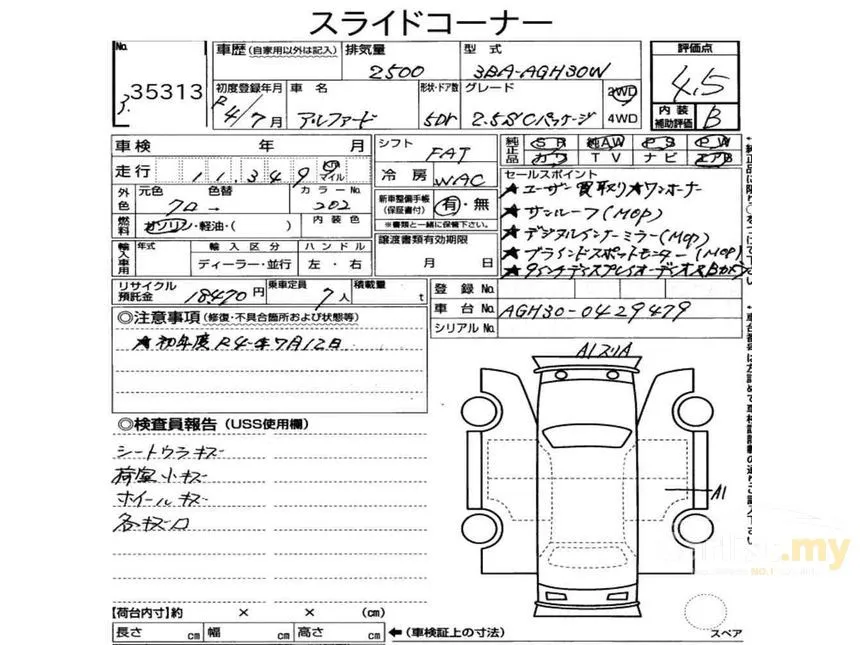 スライドコーナー
No.
35313
車歴(自家用以外は記入)
排気量
2500
型式
3BA-AGH30W
評価点
4.5
初度登録年月
R4/7月
車名
アルファード
形状・ドア数
5Dr
グレード
2.5SCパッケージ
2WD
4WD
内装補助評価
B
車検 年 月
走行
11,349
km
マイル
シフト
FAT
冷房
WAC
純正品
SR 純AW PS PW
カワ TV ナビ エアB
外色
元色 色替
クロ→
カラーNo.
202
燃料
ガソリン・軽油・( )
内装色
新車整備手帳
(保証書付)
有・無
※書類と一緒に保管下さい。
セールスポイント
★ユーザー買取り★ワンオーナー
★サンルーフ(MOP)
★デジタルインナーミラー(MOP)
★ブラインドスポットモニター(MOP)
★9インチディスプレイオーディオ★Bカメラ
輸入車用
年式 輸入区分 ハンドル
ディーラー・並行 左・右
譲渡書類有効期限
月 日
リサイクル預託金
18470円
乗車定員
7人
積載量
t
登録No.
車台No.
AGH30-0429479
シリアルNo.
◎注意事項(修復・不具合箇所および状態等)
★初年度R4年7月12日
◎検査員報告(USS使用欄)
シートウラキズ
荷室小キズ
ホイールキズ
各キズ
A1スリA
A1
【荷台内寸】約 × × (cm)
長さ cm 幅 cm 高さ cm
←(車検証上の寸法)
スペア
.my
NO.1